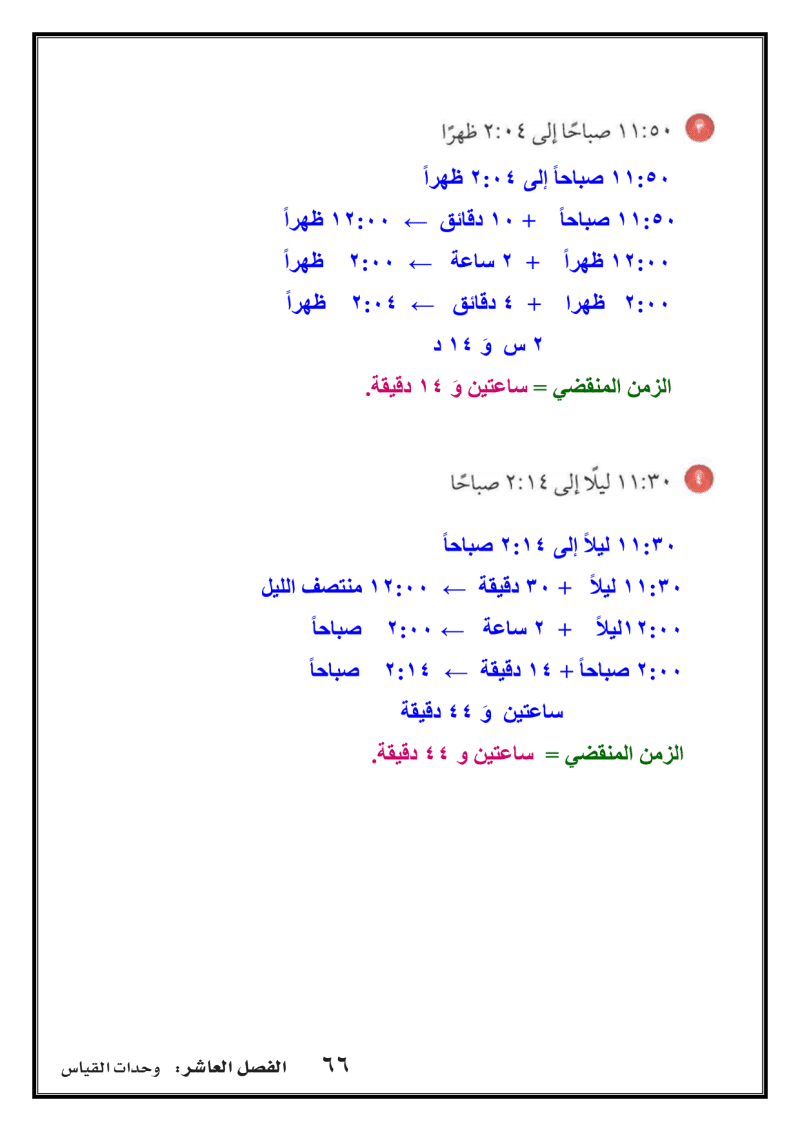 ٣ ١١:٥٠ صباحًا إلى ٢:٠٤ ظهرًا
١١:٥٠ صباحاً إلى ٢:٠٤ ظهراً
١١:٥٠ صباحاً + ١٠ دقائق ← ١٢:٠٠ ظهراً
١٢:٠٠ ظهراً + ٢ ساعة ← ٢:٠٠ ظهراً
٢:٠٠ ظهرا + ٤ دقائق ← ٢:٠٤ ظهراً
٢ س وَ ١٤ د
الزمن المنقضي = ساعتين وَ ١٤ دقيقة.
٤ ١١:٣٠ ليلًا إلى ٢:١٤ صباحًا
١١:٣٠ ليلاً إلى ٢:١٤ صباحاً
١١:٣٠ ليلاً + ٣٠ دقيقة ← ١٢:٠٠ منتصف الليل
١٢:٠٠ليلاً + ٢ ساعة ← ٢:٠٠ صباحاً
٢:٠٠ صباحاً + ١٤ دقيقة ← ٢:١٤ صباحاً
ساعتين وَ ٤٤ دقيقة
الزمن المنقضي = ساعتين و ٤٤ دقيقة.
٦٦ الفصل العاشر: وحدات القياس